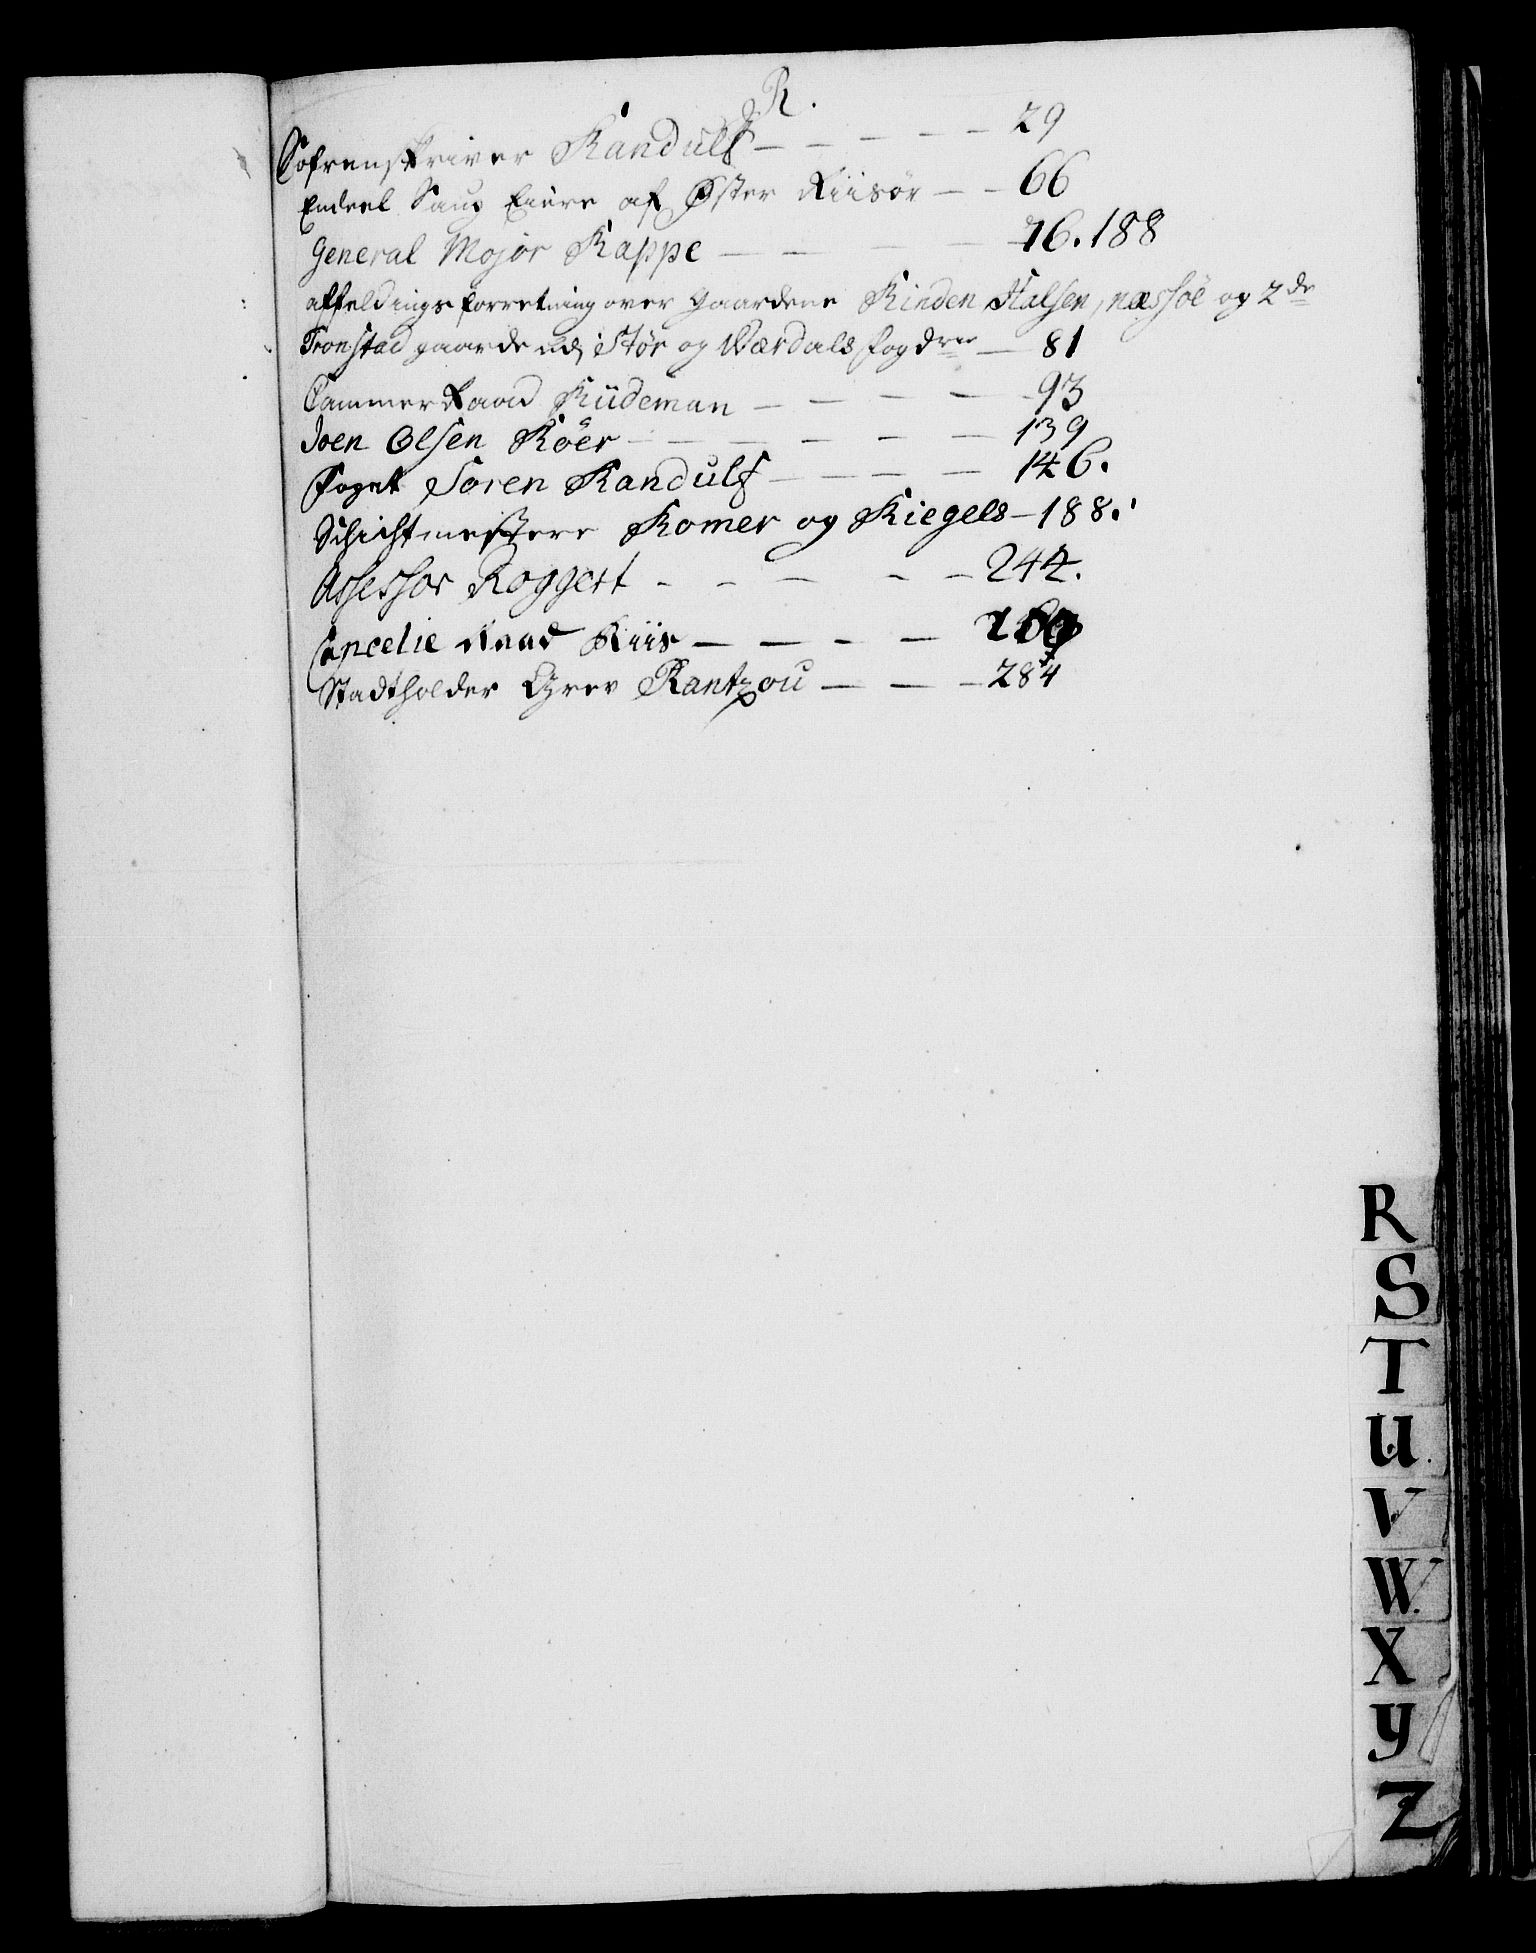 R.
Sofrenskriver Randulf — — — — — 29
Endeel Saug Eiere af Øster Riisør — — 66
General Major Rappe — — — — 76. 188
affeldings forretning over gaardene Rinden, Halsen, næssöe og 2de
Tronstad gaarde udj Stør og Værdals fogdrie — 81
Cammer Raad Rüdeman — — — — 93
Joen Olsen Röer — — — — — — 139
Foget Sören Randulf — — — — 146.
Schichtmestere Romer og Riegels — 188.
Assessor Roggert — — — — — 244.
Cancelie Raad Riis — — — —
Stadtholder Grev Rantzou — — — 284
R
S
T
U
V
W
X
Y
Z